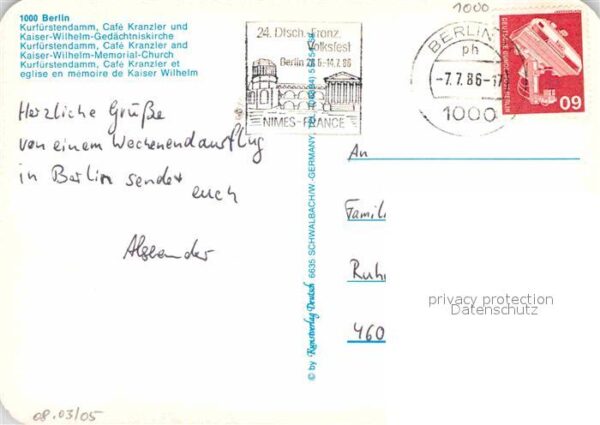 1000 Berlin
Kurfürstendamm, Café Kranzler und
Kaiser-Wilhelm-Gedächtniskirche
Kurfürstendamm, Café Kranzler and
Kaiser-Wilhelm-Memorial-Church
Kurfürstendamm, Café Kranzler et
eglise en mémoire de Kaiser Wilhelm
24. Dtsch.-Franz.
Volksfest
Berlin
14.7.86
NIMES-FRANCE
1000
BERLIN
ph
-7.7.86-17
1000
DEUTSCHE BUNDESPOST BERLIN
60
Herzliche Grüße
von einem Wochenendausflug
in Berlin sendet
euch
Alexander
An
Famili
Ruh
460
privacy protection
Datenschutz
© by Kunstverlag Deutsch 6635 SCHWALBACH/W.-GERMANY
08.03/05